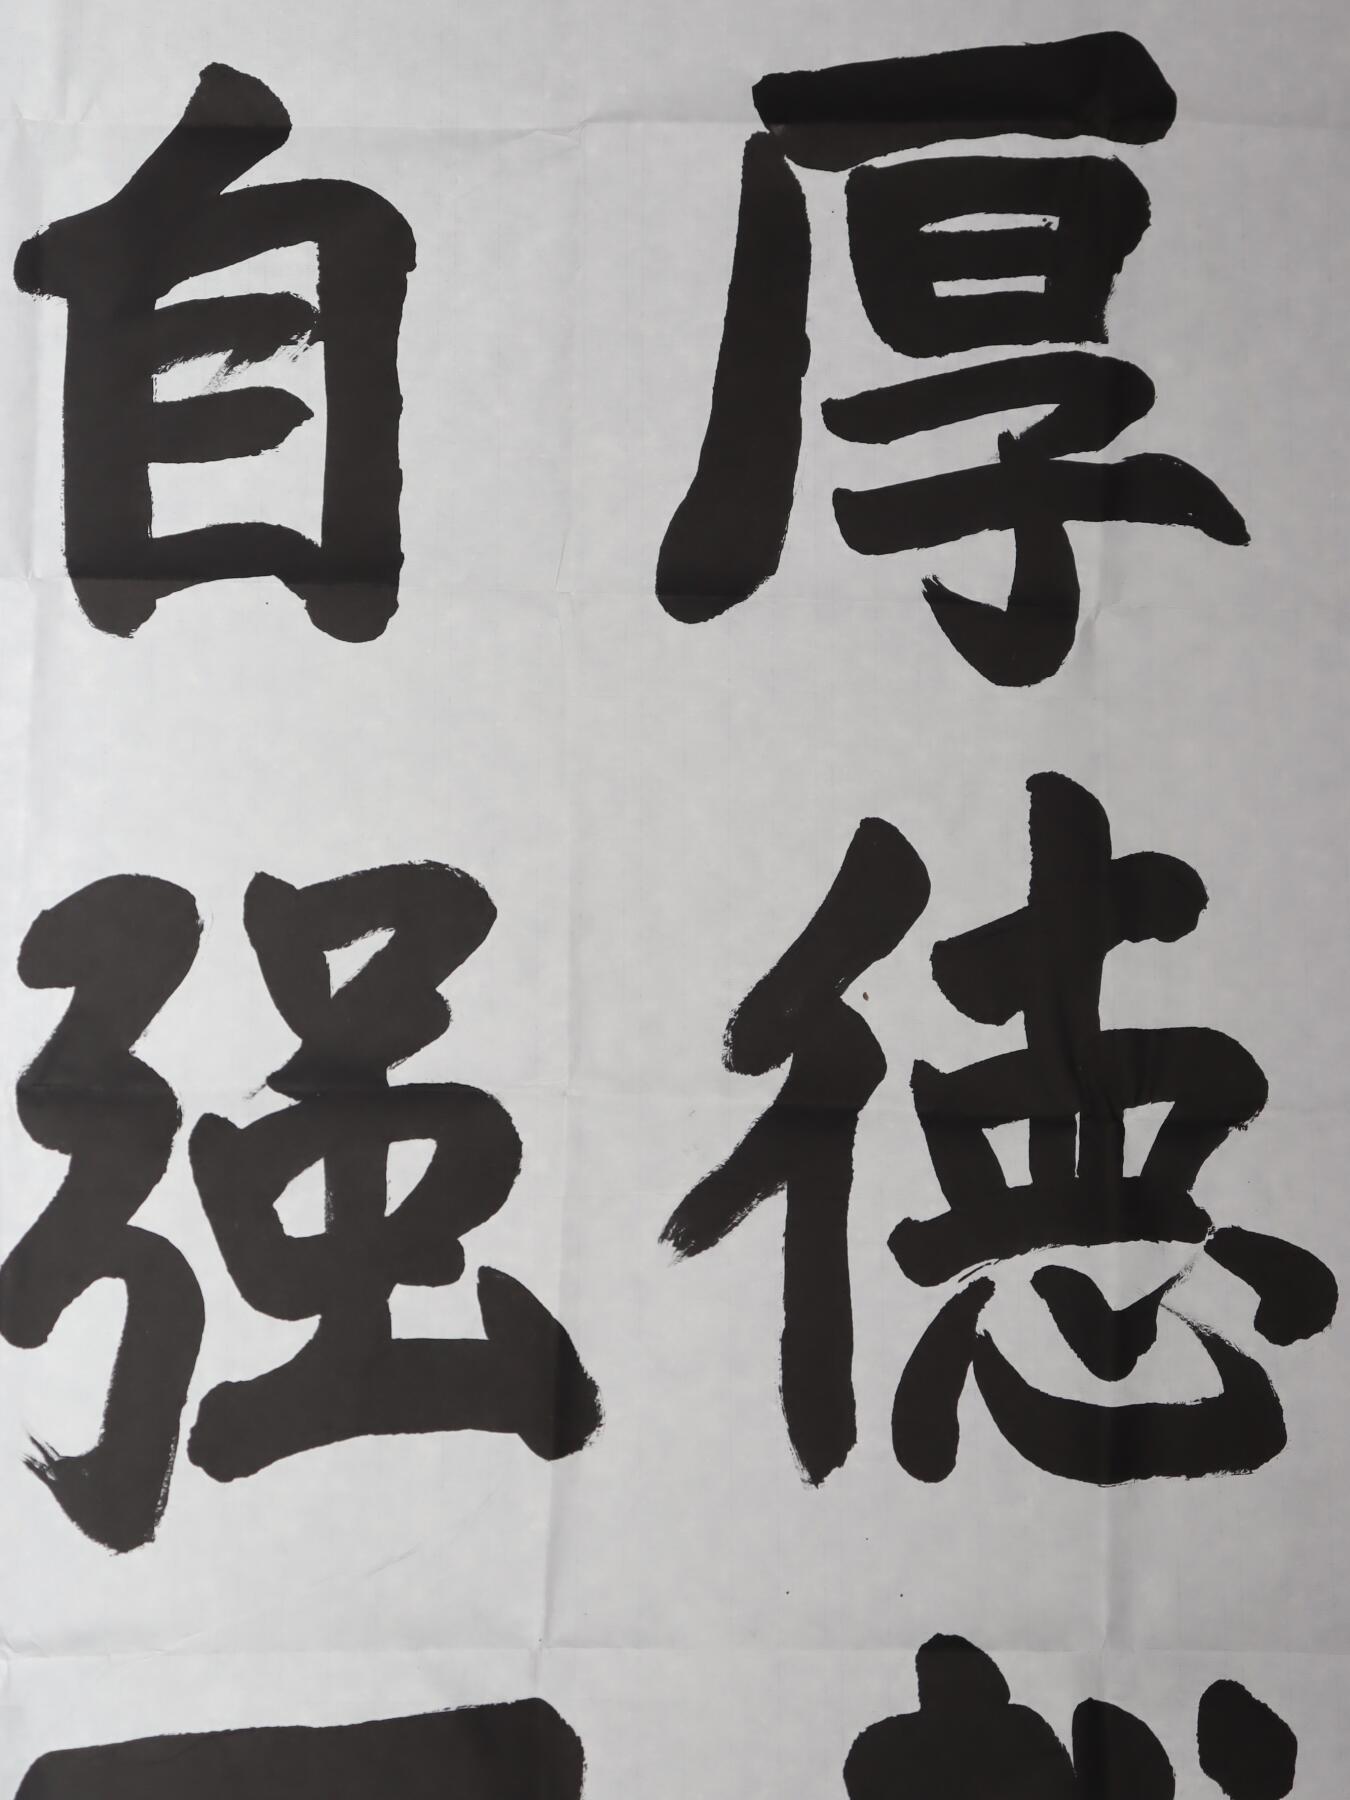 厚德
自强